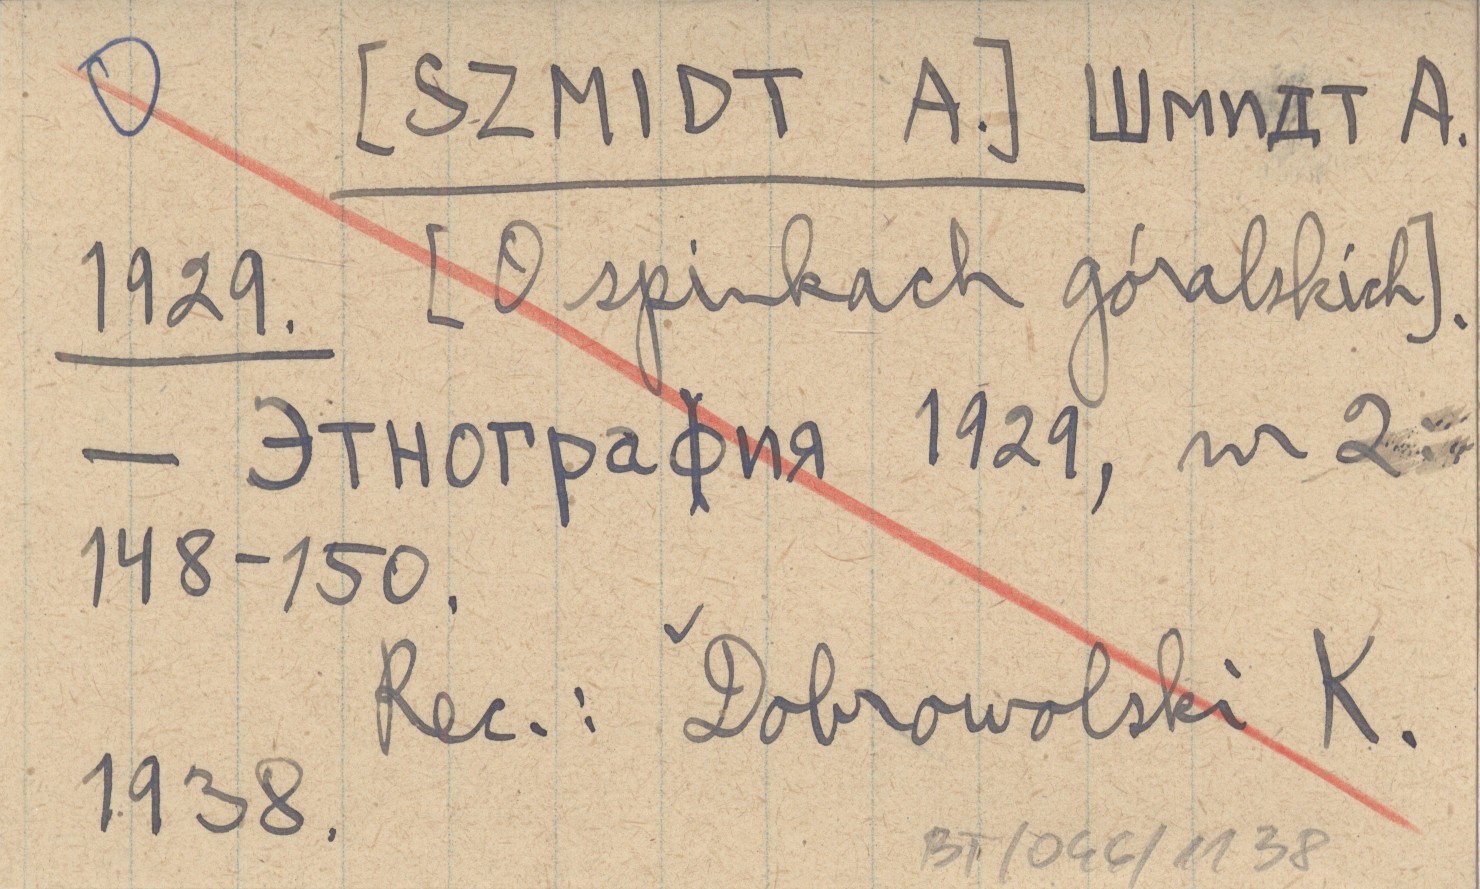 [SZMIDT A.] Шмидт А.
1929. [O spinkach góralskich].
— Этнография 1929, nr 2:
148-150.
Rec.: Dobrowolski K.
1938.
BT/046/1138